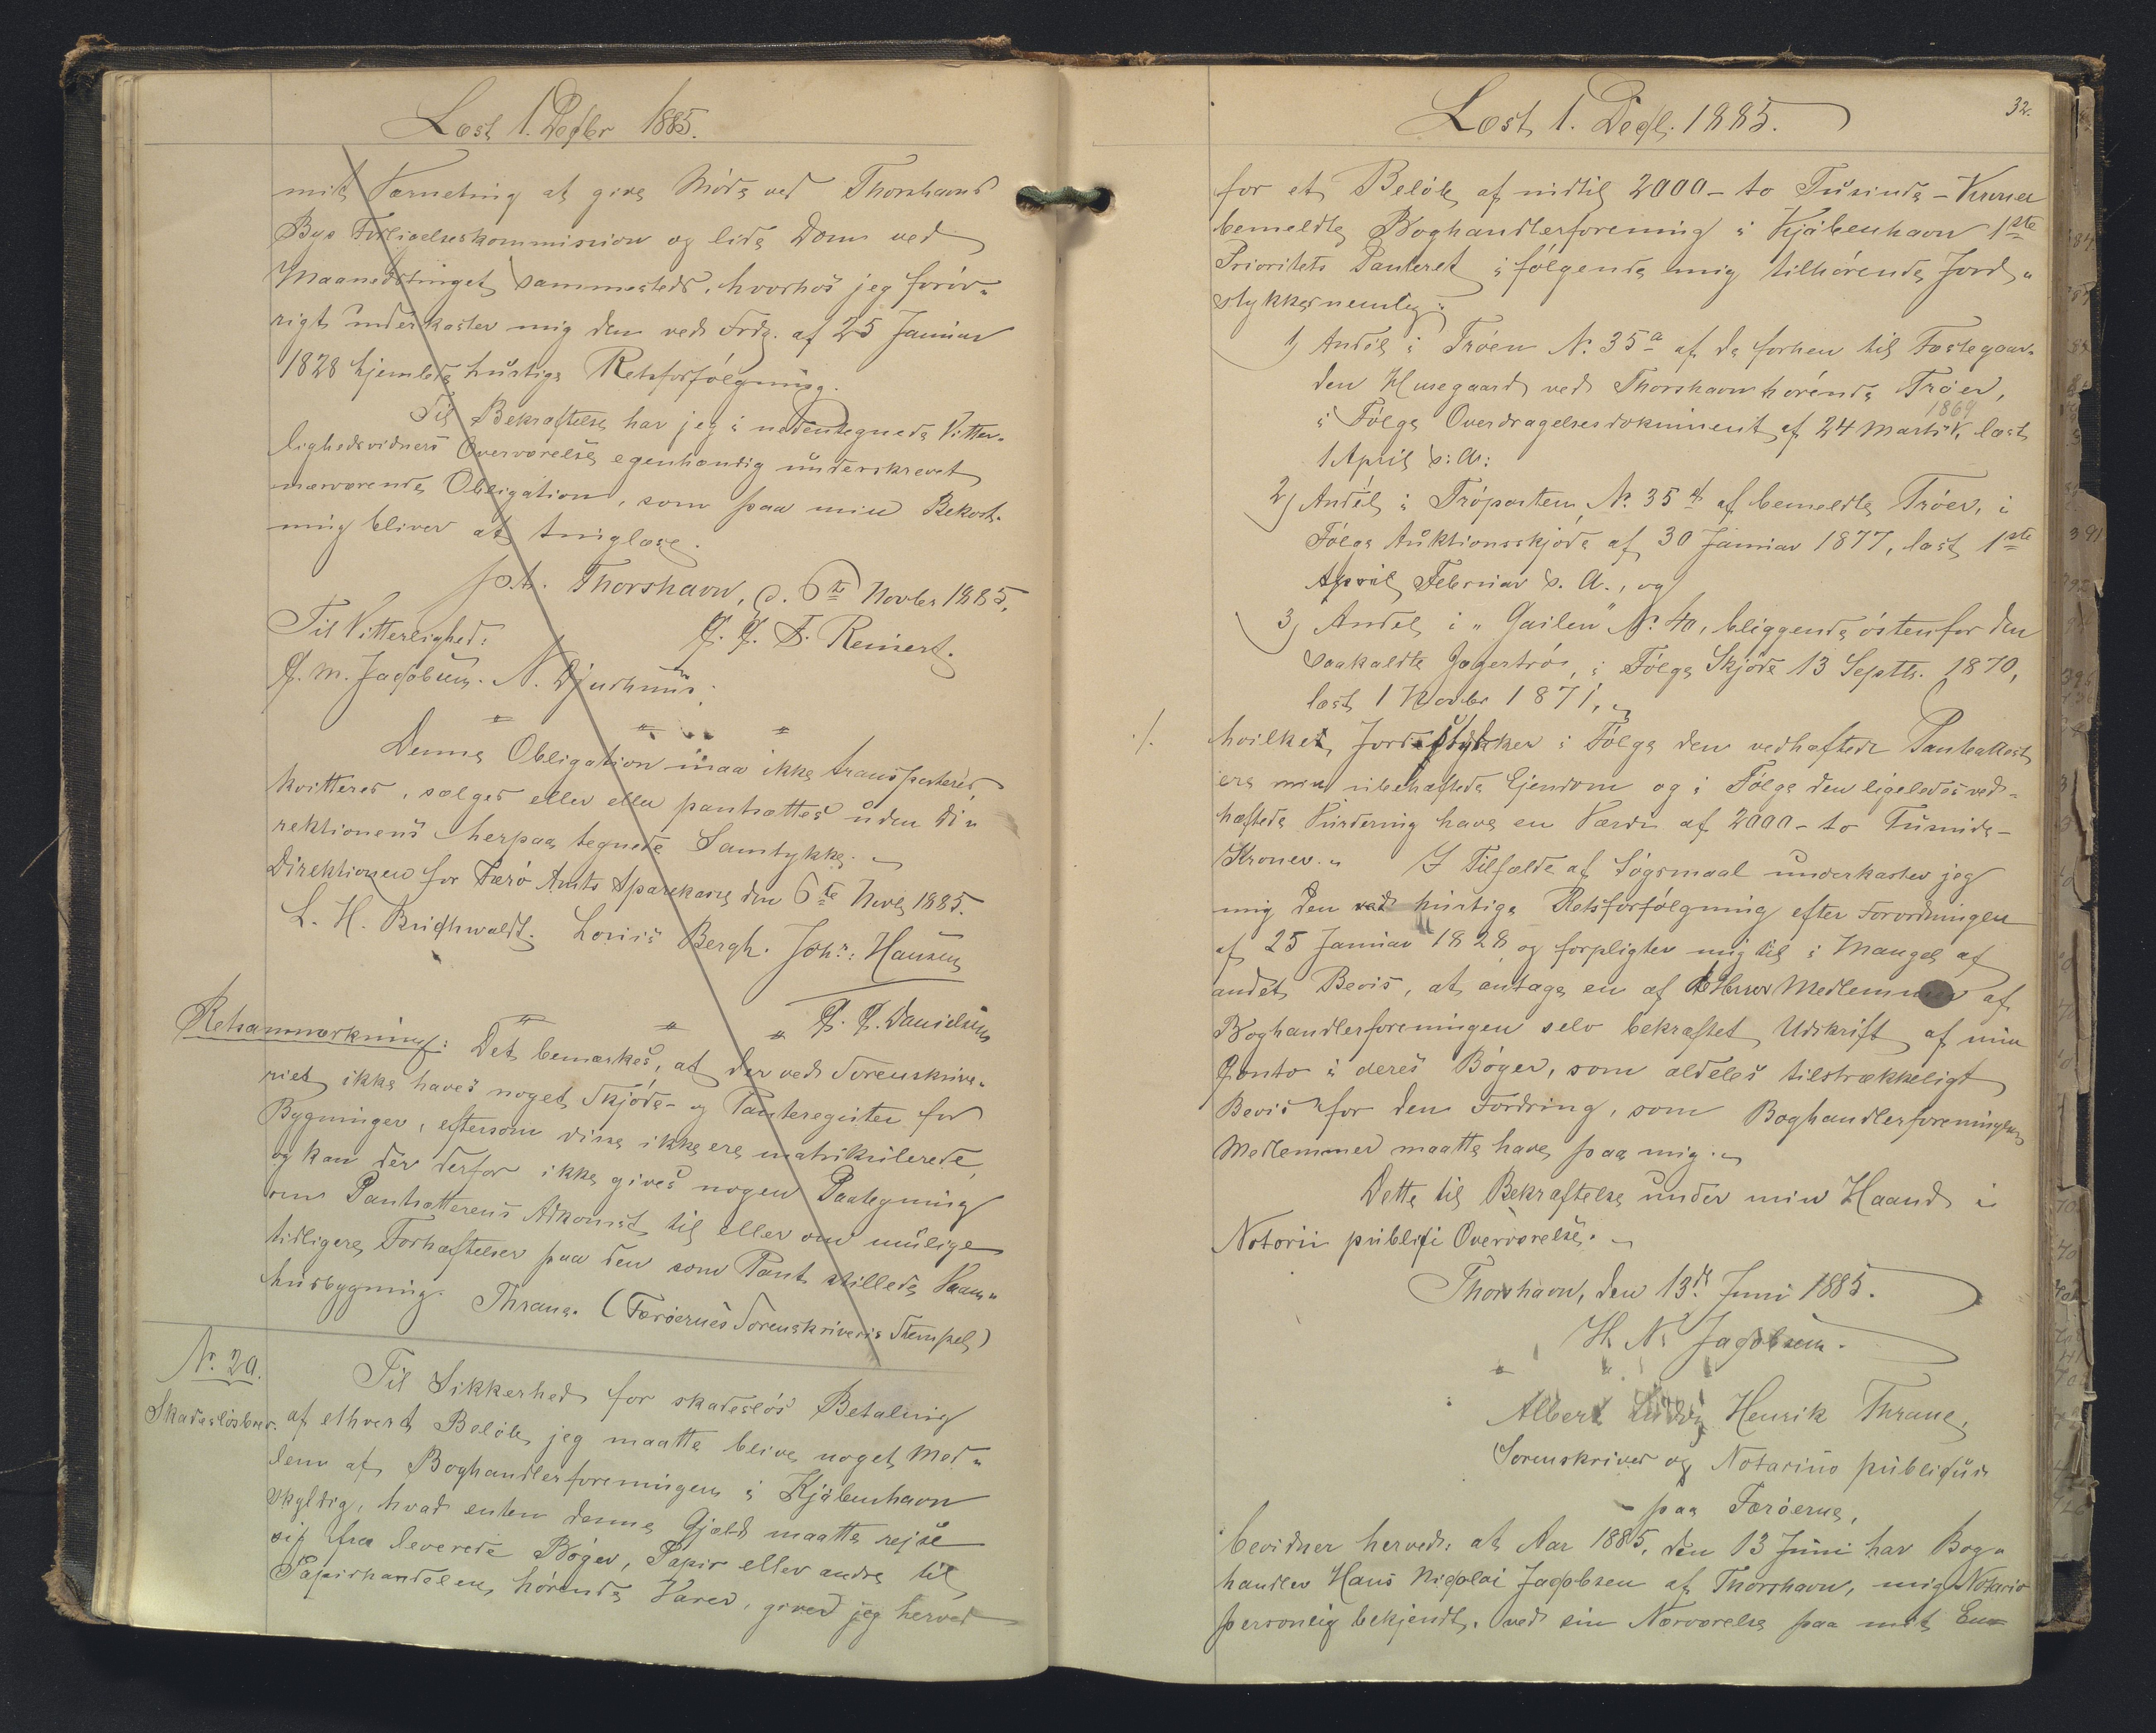 Læst 1. Decbr 1885.
mit Værneting at give Möde ved Thorshavns
Bys Forligelseskommission og lide Dom ved
Maanedstinget sammesteds, hvorhos jeg foröv-
rigt underkaster mig den ved Frdg. af 25 Januar
1828 hjemlede hurtige Retsforfølgning.
Til Bekræftelse har jeg i nedentegnede Vitter-
lighedsvidners Overværelse egenhændig underskrevet
nærværende Obligation, som paa min Bekost-
ning bliver at tinglæse.
p.t. Thorshavn, d. 6te Novbr 1885.
Til Vitterlighed: J. J. F. Reinert.
J. M. Jacobsen. N. Djurhuus.
Denne Obligation maa ikke transporteres,
kvitteres, sælges eller pantsættes uden Di-
rektionens herpaa tegnede Samtykke.
Direktionen for Færö Amts Sparekasse den 6te Novb 1885.
L. H. Buchwaldt. Louis Bergh. Johs: Hansen
J. J. Danielsen
Retsanmærkning: Det bemærkes, at der ved Sorenskrive-
riet ikke haves noget Skjøde- og Panteregister for
Bygninger, eftersom disse ikke ere matrikulerede,
og kan der derfor ikke gives nogen Paategning
om Pantsætterens Adkomst til eller om mulige
tidligere Forhæftelser paa den som Pant stillede Vaan-
husbygning. Thrane. (Færöernes Sorenskriveris Stempel)
Nr. 20.
Skadeslösbrev.
Til Sikkerhed for skadeslös Betaling
af ethvert Belöb, jeg maatte blive noget Med-
lem af Boghandlerforeningen i Kjöbenhavn
skyldig, hvad enten denne Gjæld maatte rejse
sig fra leverede Böger, Papir eller andre til
Papirhandelen hörende Varer, giver jeg herved
32.
Læst 1. Decb. 1885.
for et Belöb af indtil 2000 - to Tusinde - Kroner
bemeldte Boghandlerforening i Kjöbenhavn 1ste
Prioritets Panteret i fölgende mig tilhörende Jord-
stykker nemlig:
1) Andél i Tröen No. 35a af de forhen til Fæstegaar-
den Husegaard ved Thorshavn hörende Tröer,
i Fölge Overdragelsesdokument af 24 Marts 1869, læst
1 April s: A:
2) Andél i Tröparten No. 35d af bemeldte Tröer, i
Fölge Auktionsskjöde af 30 Januar 1877, læst 1ste
April Februar s. A., og
3) Andel i "Gailen" No. 40, beliggende östenfor den
saakaldte Jagertrö, i Fölge Skjöde 13 Septb. 1870,
læst 1 Novbr 1871,
·/.
hvilke Jordstykker i Fölge den vedhæftede Panteattest
ere min ubehæftede Ejendom og i Fölge den ligeledes ved-
hæftede Vurdering have en Værdi af 2000 - to Tusinde -
Kroner. I Tilfælde af Sögsmaal underkaster jeg
mig den hurtige Retsforfölgning efter Forordningen
af 25 Januar 1828 og forpligter mig til i Mangel af
andet Bevis, at antage en af Herrer Medlemmer af
Boghandlerforeningen selv bekræftet Udskrift af min
Conto i deres Böger, som aldeles tilstrækkeligt
Bevis for den Fordring, som Boghandlerforeningens
Medlemmer maatte have paa mig.
Dette til Bekræftelse under min Haand i
Notarii publici Overværelse.
Thorshavn, den 13de Juni 1885.
H. N. Jacobsen.
Albert Henrik Thrane,
Sorenskriver og Notarius publicus
paa Færöerne,
bevidner herved: at Aar 1885, den 13 Juni har Bog-
handler Hans Nicolai Jacobsen af Thorshavn, mig Notario
personlig bekjendt, ved sin Nærværelse paa mit Em-